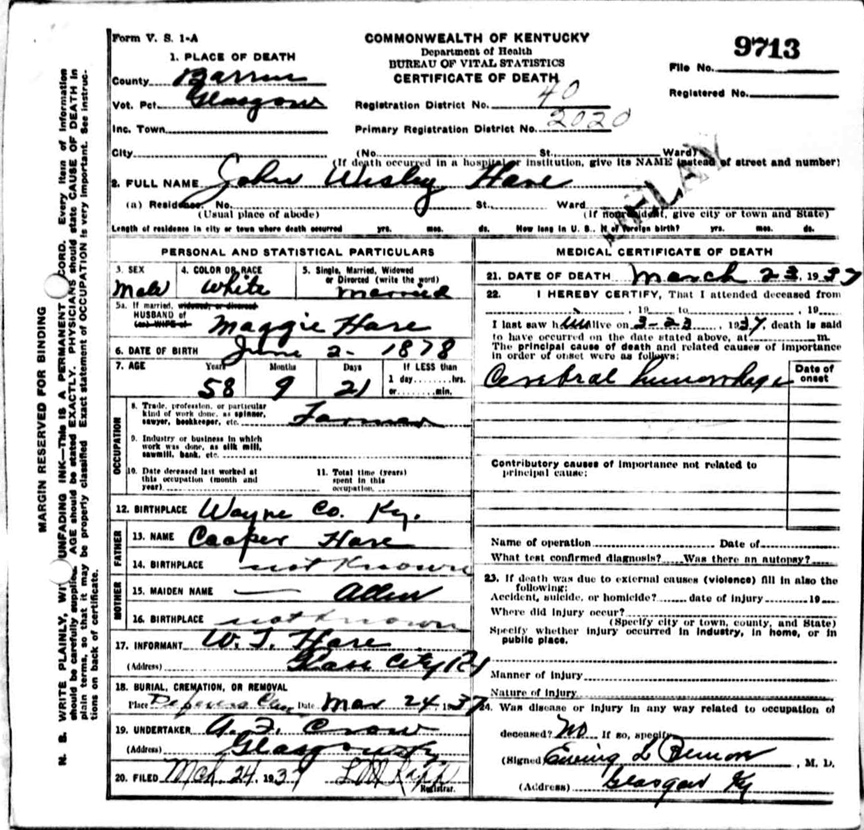 Form V. S. 1-A
COMMONWEALTH OF KENTUCKY
Department of Health
BUREAU OF VITAL STATISTICS
CERTIFICATE OF DEATH
9713
File No.
Registered No.
1. PLACE OF DEATH
County Barren
Vot. Pct. Glasgow
Inc. Town
City
Registration District No. 40
Primary Registration District No. 2020
(No. St. Ward)
(If death occurred in a hospital or institution, give its NAME instead of street and number)
2. FULL NAME John Wesley Hare
(a) Residence, No. St. Ward
(Usual place of abode) (If nonresident, give city or town and State)
DELAY
Length of residence in city or town where death occurred yrs. mos. ds. How long in U. S., if of foreign birth? yrs. mos. ds.
PERSONAL AND STATISTICAL PARTICULARS
3. SEX Male
4. COLOR OR RACE White
5. Single, Married, Widowed or Divorced (write the word) Married
5a. If married, widowed, or divorced
HUSBAND of
(or) WIFE of Maggie Hare
6. DATE OF BIRTH June 2 - 1878
7. AGE Years 58 Months 9 Days 21
If LESS than
1 day hrs.
or min.
OCCUPATION
8. Trade, profession, or particular
kind of work done, as spinner,
sawyer, bookkeeper, etc. Farmer
9. Industry or business in which
work was done, as silk mill,
sawmill, bank, etc.
10. Date deceased last worked at
this occupation (month and
year)
11. Total time (years)
spent in this
occupation
12. BIRTHPLACE Wayne Co. Ky.
FATHER
13. NAME Cooper Hare
14. BIRTHPLACE not Known
MOTHER
15. MAIDEN NAME — Allen
16. BIRTHPLACE not known
17. INFORMANT W. T. Hare
(Address)
18. BURIAL, CREMATION, OR REMOVAL
Place Date Mar 24 1937
19. UNDERTAKER A. F. Crow
(Address) Glasgow Ky
20. FILED Mch. 24, 1937
Registrar.
MEDICAL CERTIFICATE OF DEATH
21. DATE OF DEATH March 23, 1937
22. I HEREBY CERTIFY, That I attended deceased from
, 19 to , 19
I last saw him alive on 3-23, 1937, death is said
to have occurred on the date stated above, at m.
The principal cause of death and related causes of importance
in order of onset were as follows:
Date of
onset
Cerebral hemorrhage
Contributory causes of importance not related to
principal cause:
Name of operation Date of
What test confirmed diagnosis? Was there an autopsy?
23. If death was due to external causes (violence) fill in also the
following:
Accident, suicide, or homicide? date of injury 19
Where did injury occur?
(Specify city or town, county, and State)
Specify whether injury occurred in industry, in home, or in
public place.
Manner of injury
Nature of injury
24. Was disease or injury in any way related to occupation of
deceased? No If so, specify
(Signed) M. D.
(Address) Glasgow Ky
MARGIN RESERVED FOR BINDING
N. B. WRITE PLAINLY, WITH UNFADING INK—This is A PERMANENT RECORD. Every item of information
should be carefully supplied. AGE should be stated EXACTLY. PHYSICIANS should state CAUSE OF DEATH in
plain terms, so that it may be properly classified. Exact statement of OCCUPATION is very important. See instruc-
tions on back of certificate.